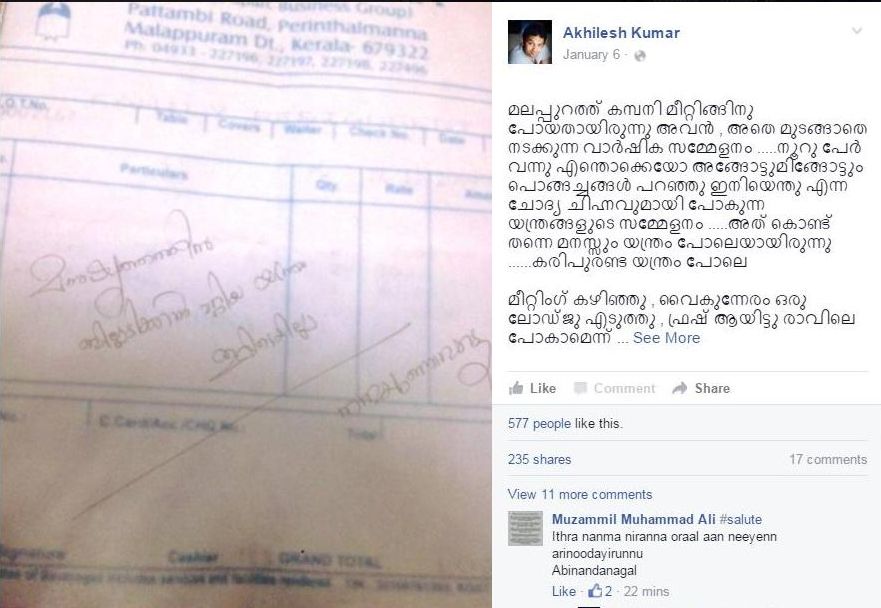 Business Group)
Pattambi Road, Perinthalmanna
Malappuram Dt., Kerala- 679322
Ph: 04933 - 227196, 227197, 227198, 227496
Table Covers Waiter Check No. Date
Particulars Qty. Rate
മനുഷ്യത്വത്തിന്
ബില്ലടിക്കാൻ പറ്റിയ യന്ത്രം
ഇവിടെയില്ല
Total
Signature Cashier GRAND TOTAL
Akhilesh Kumar
January 6 ·
മലപ്പുറത്ത് കമ്പനി മീറ്റിങ്ങിനു
പോയതായിരുന്നു അവൻ , അതെ മുടങ്ങാതെ
നടക്കുന്ന വാർഷിക സമ്മേളനം .....നൂറു പേർ
വന്നു എന്തൊക്കെയോ അങ്ങോട്ടുമിങ്ങോട്ടും
പൊങ്ങച്ചങ്ങൾ പറഞ്ഞു ഇനിയെന്തു എന്ന
ചോദ്യ ചിഹ്നവുമായി പോകുന്ന
യന്ത്രങ്ങളുടെ സമ്മേളനം .....അത് കൊണ്ട്
തന്നെ മനസ്സും യന്ത്രം പോലെയായിരുന്നു
......കരിപുരണ്ട യന്ത്രം പോലെ
മീറ്റിംഗ് കഴിഞ്ഞു , വൈകുന്നേരം ഒരു
ലോഡ്ജു എടുത്തു , ഫ്രഷ് ആയിട്ടു രാവിലെ
പോകാമെന്ന് ... See More
Like Comment Share
577 people like this.
235 shares 17 comments
View 11 more comments
Muzammil Muhammad Ali #salute
Ithra nanma niranna oraal aan neeyenn
arinoodayirunnu
Abinandanagal
Like · 2 · 22 mins